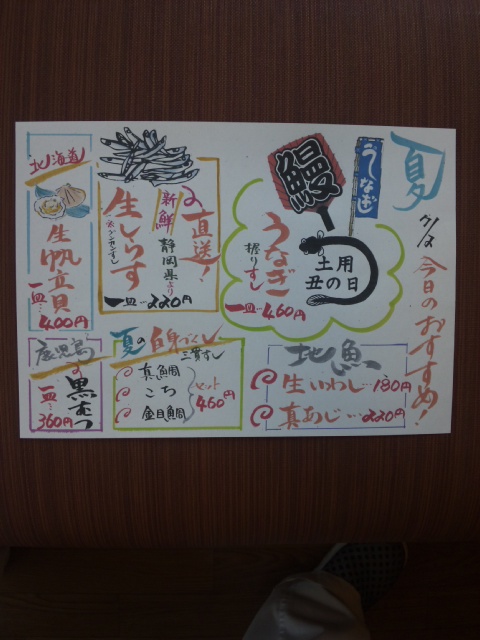 夏
今日のおすすめ!
うなぎ
鰻
土用
丑の日
うなぎ
握りずし
一皿…460円
直送!
新鮮
静岡県より
生しらす
一皿…220円
北海道
生帆立貝
一皿…400円
地魚
生いわし…180円
真あじ…220円
夏の白身づくし
三貫ずし
真鯛
こち
金目鯛
セット
460円
鹿児島
黒むつ
一皿…360円